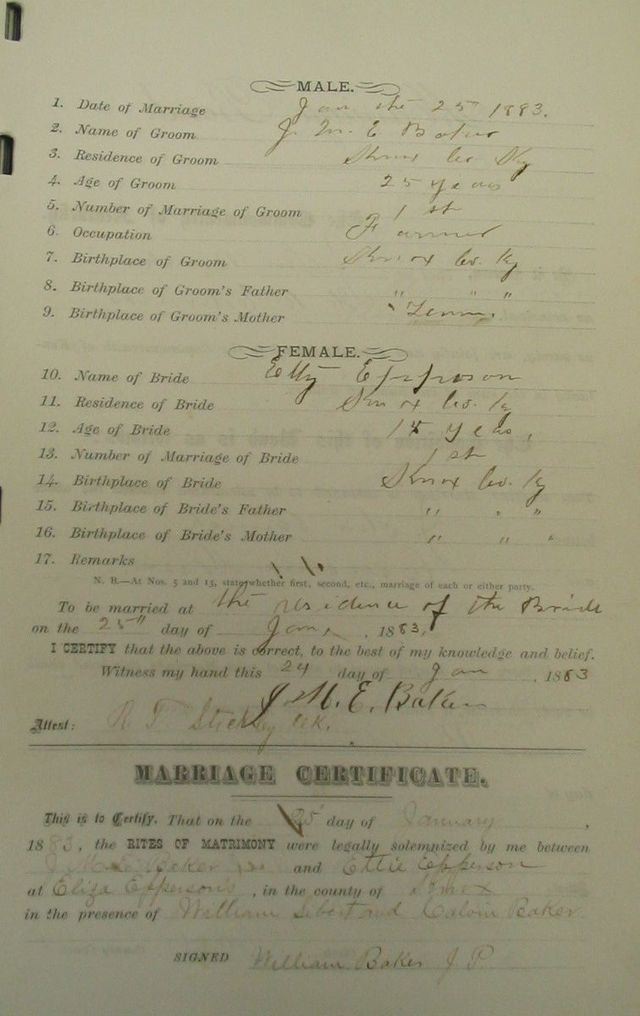 MALE.
1. Date of Marriage Jan the 25 1883.
2. Name of Groom J. M. E Baker
3. Residence of Groom Knox Co Ky
4. Age of Groom 25 years
5. Number of Marriage of Groom 1 st
6. Occupation Farmer
7. Birthplace of Groom Knox Co. Ky
8. Birthplace of Groom's Father " " "
9. Birthplace of Groom's Mother Tenn.
FEMALE.
10. Name of Bride Etty Epperson
11. Residence of Bride Knox Co. Ky
12. Age of Bride years,
13. Number of Marriage of Bride 1 st
14. Birthplace of Bride Knox Co. Ky
15. Birthplace of Bride's Father " " "
16. Birthplace of Bride's Mother " " "
17. Remarks
N. B.—At Nos. 5 and 13, state whether first, second, etc., marriage of each or either party.
To be married at the residence of the Bride
on the 25" day of Jan, 1883,
I CERTIFY that the above is correct, to the best of my knowledge and belief.
Witness my hand this 24 day of Jan, 1883
J. M. E. Baker
Attest: R T
MARRIAGE CERTIFICATE.
This is to Certify, That on the 25 day of January,
1883, the RITES OF MATRIMONY were legally solemnized by me between
J M E Baker and Ettie Epperson
at Eliza Epperson's, in the county of Knox
in the presence of William and Calvin Baker
SIGNED William Baker J P.